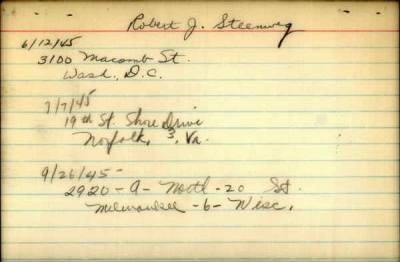 Robert J. Steenweg
6/12/45
3100 Macomb St.
Wash., D.C.
7/7/45
19th St. Shore Drive
Norfolk, 3, Va.
9/26/45-
2920-A-North-20 St.
Milwaukee -6- Wisc.